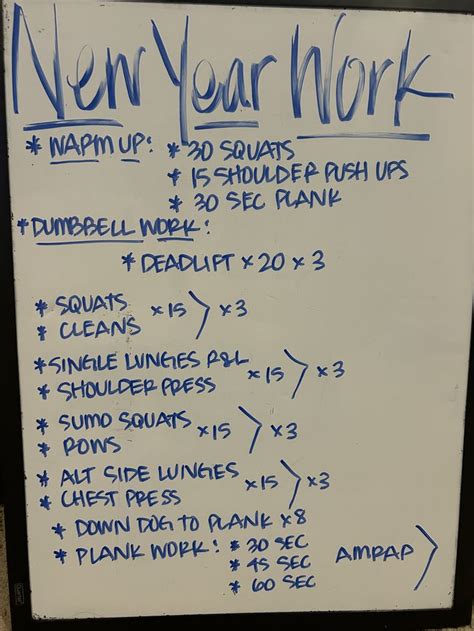 New Year Work
* WARM UP: * 30 SQUATS
* 15 SHOULDER PUSH UPS
* 30 SEC PLANK
* DUMBBELL WORK:
* DEADLIFT x 20 x 3
* SQUATS x15 > x3
* CLEANS
* SINGLE LUNGIES R&L x15 > x3
* SHOULDER PRESS
* SUMO SQUATS x15 > x3
* ROWS
* ALT SIDE LUNGIES x15 > x3
* CHEST PRESS
* DOWN DOG TO PLANK x8
* PLANK WORK: * 30 SEC AMRAP >
* 45 SEC
* 60 SEC